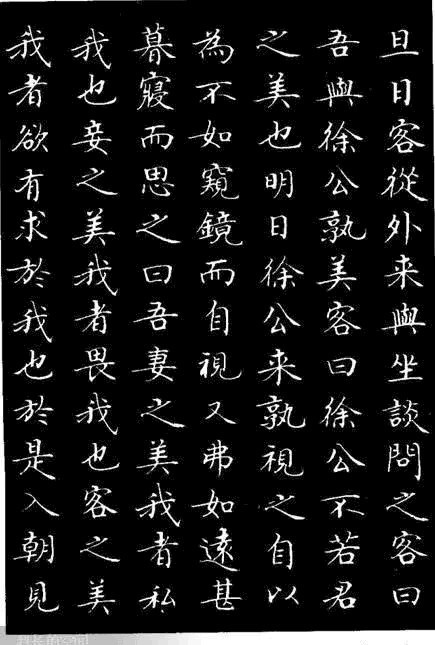 旦日客從外来與坐談問之客曰
吾與徐公孰美客曰徐公不若君
之美也明日徐公来孰視之自以
為不如窺鏡而自視又弗如遠甚
暮寢而思之曰吾妻之美我者私
我也妾之美我者畏我也客之美
我者欲有求於我也於是入朝見